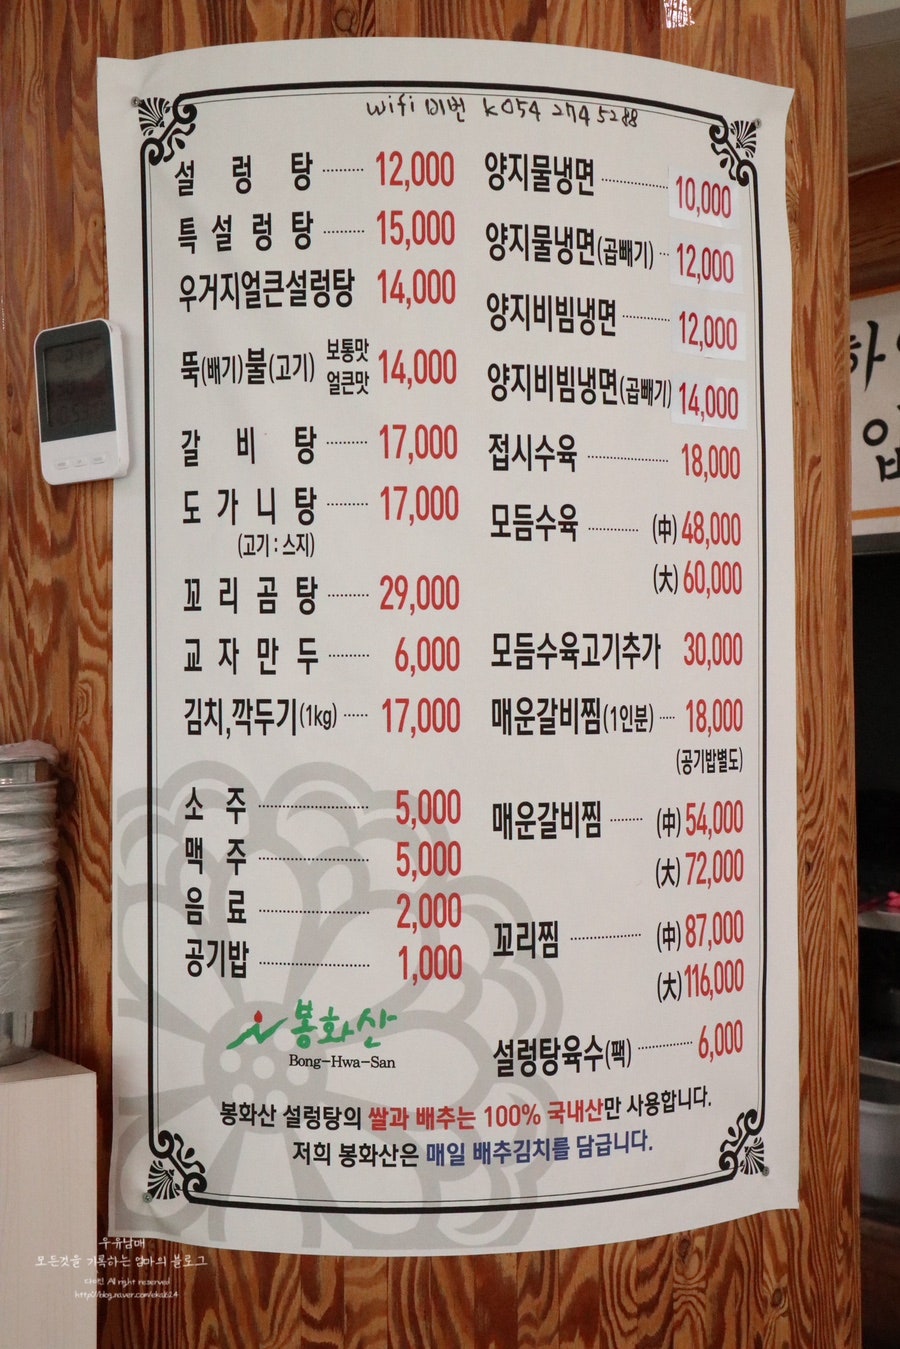 wifi 비번 k054 274 5288
설렁탕 12,000
특설렁탕 15,000
우거지얼큰설렁탕 14,000
뚝(배기)불(고기) 보통맛 얼큰맛 14,000
갈비탕 17,000
도가니탕 17,000
(고기 : 스지)
꼬리곰탕 29,000
교자만두 6,000
김치,깍두기(1kg) 17,000
소주 5,000
맥주 5,000
음료 2,000
공기밥 1,000
양지물냉면 10,000
양지물냉면(곱빼기) 12,000
양지비빔냉면 12,000
양지비빔냉면(곱빼기) 14,000
접시수육 18,000
모듬수육 (中) 48,000
(大) 60,000
모듬수육고기추가 30,000
매운갈비찜(1인분) 18,000
(공기밥별도)
매운갈비찜 (中) 54,000
(大) 72,000
꼬리찜 (中) 87,000
(大) 116,000
설렁탕육수(팩) 6,000
봉화산
Bong-Hwa-San
봉화산 설렁탕의 쌀과 배추는 100% 국내산만 사용합니다.
저희 봉화산은 매일 배추김치를 담급니다.
우유남매
모든것을 기록하는 엄마의 블로그
All right reserved